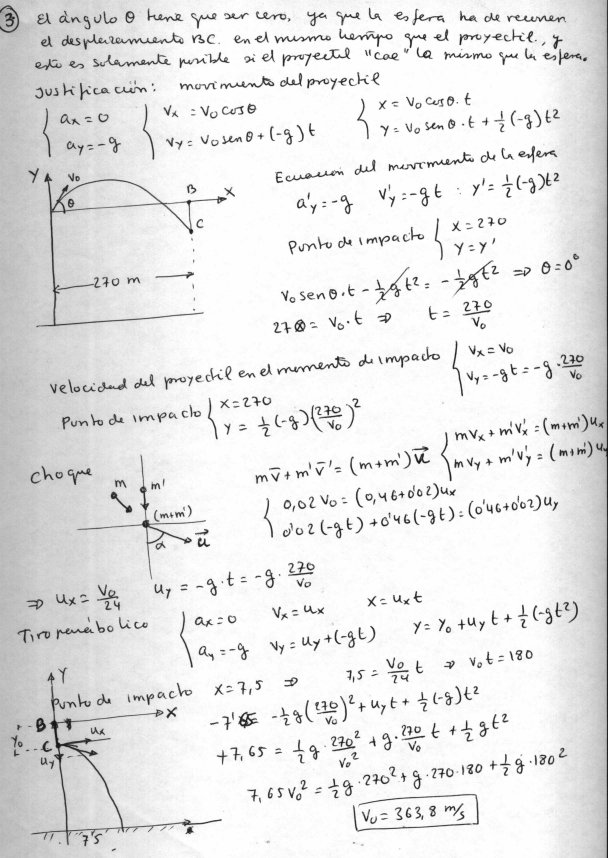 ③ El ángulo θ tiene que ser cero, ya que la esfera ha de recorrer
el desplazamiento BC. en el mismo tiempo que el proyectil, y
esto es solamente posible si el proyectil "cae" lo mismo que la esfera.
Justificación: movimiento del proyectil
{ ax = 0   { Vx = V0 cosθ   { x = V0 cosθ . t
{ ay = -g   { Vy = V0 senθ + (-g) t   { y = V0 senθ . t + 1/2 (-g) t²
Y V0 B X
θ
C
270 m
Ecuación del movimiento de la esfera
a'y = -g   V'y = -gt : y' = 1/2 (-g) t²
Punto de impacto { x = 270
{ y = y'
V0 senθ . t - 1/2 g t² = - 1/2 g t² ⇒ θ = 0°
270 = V0 . t ⇒ t = 270/V0
Velocidad del proyectil en el momento de impacto { Vx = V0
{ Vy = -gt = -g . 270/V0
Punto de impacto { x = 270
{ y = 1/2 (-g) (270/V0)²
Choque
m m'
(m+m')
α u⃗
m v̄ + m' v̄' = (m+m') u⃗   { m Vx + m' V'x = (m+m') ux
{ m Vy + m' V'y = (m+m') uy
{ 0,02 V0 = (0,46+0'02) ux
{ 0'02 (-gt) + 0'46 (-gt) = (0'46+0'02) uy
⇒ ux = V0/24   uy = -g . t = -g . 270/V0
Tiro parabolico { ax = 0   Vx = ux   x = ux t
{ ay = -g   Vy = uy + (-gt)   y = y0 + uy t + 1/2 (-gt²)
Punto de impacto x = 7,5 ⇒ 7,5 = V0/24 t ⇒ V0 t = 180
-7'65 = -1/2 g (270/V0)² + uy t + 1/2 (-g) t²
+7,65 = 1/2 g . 270²/V0² + g . 270/V0 t + 1/2 g t²
7,65 V0² = 1/2 g . 270² + g . 270 . 180 + 1/2 g . 180²
V0 = 363,8 m/s
Y
B X
y0 C ux
uy
7'5